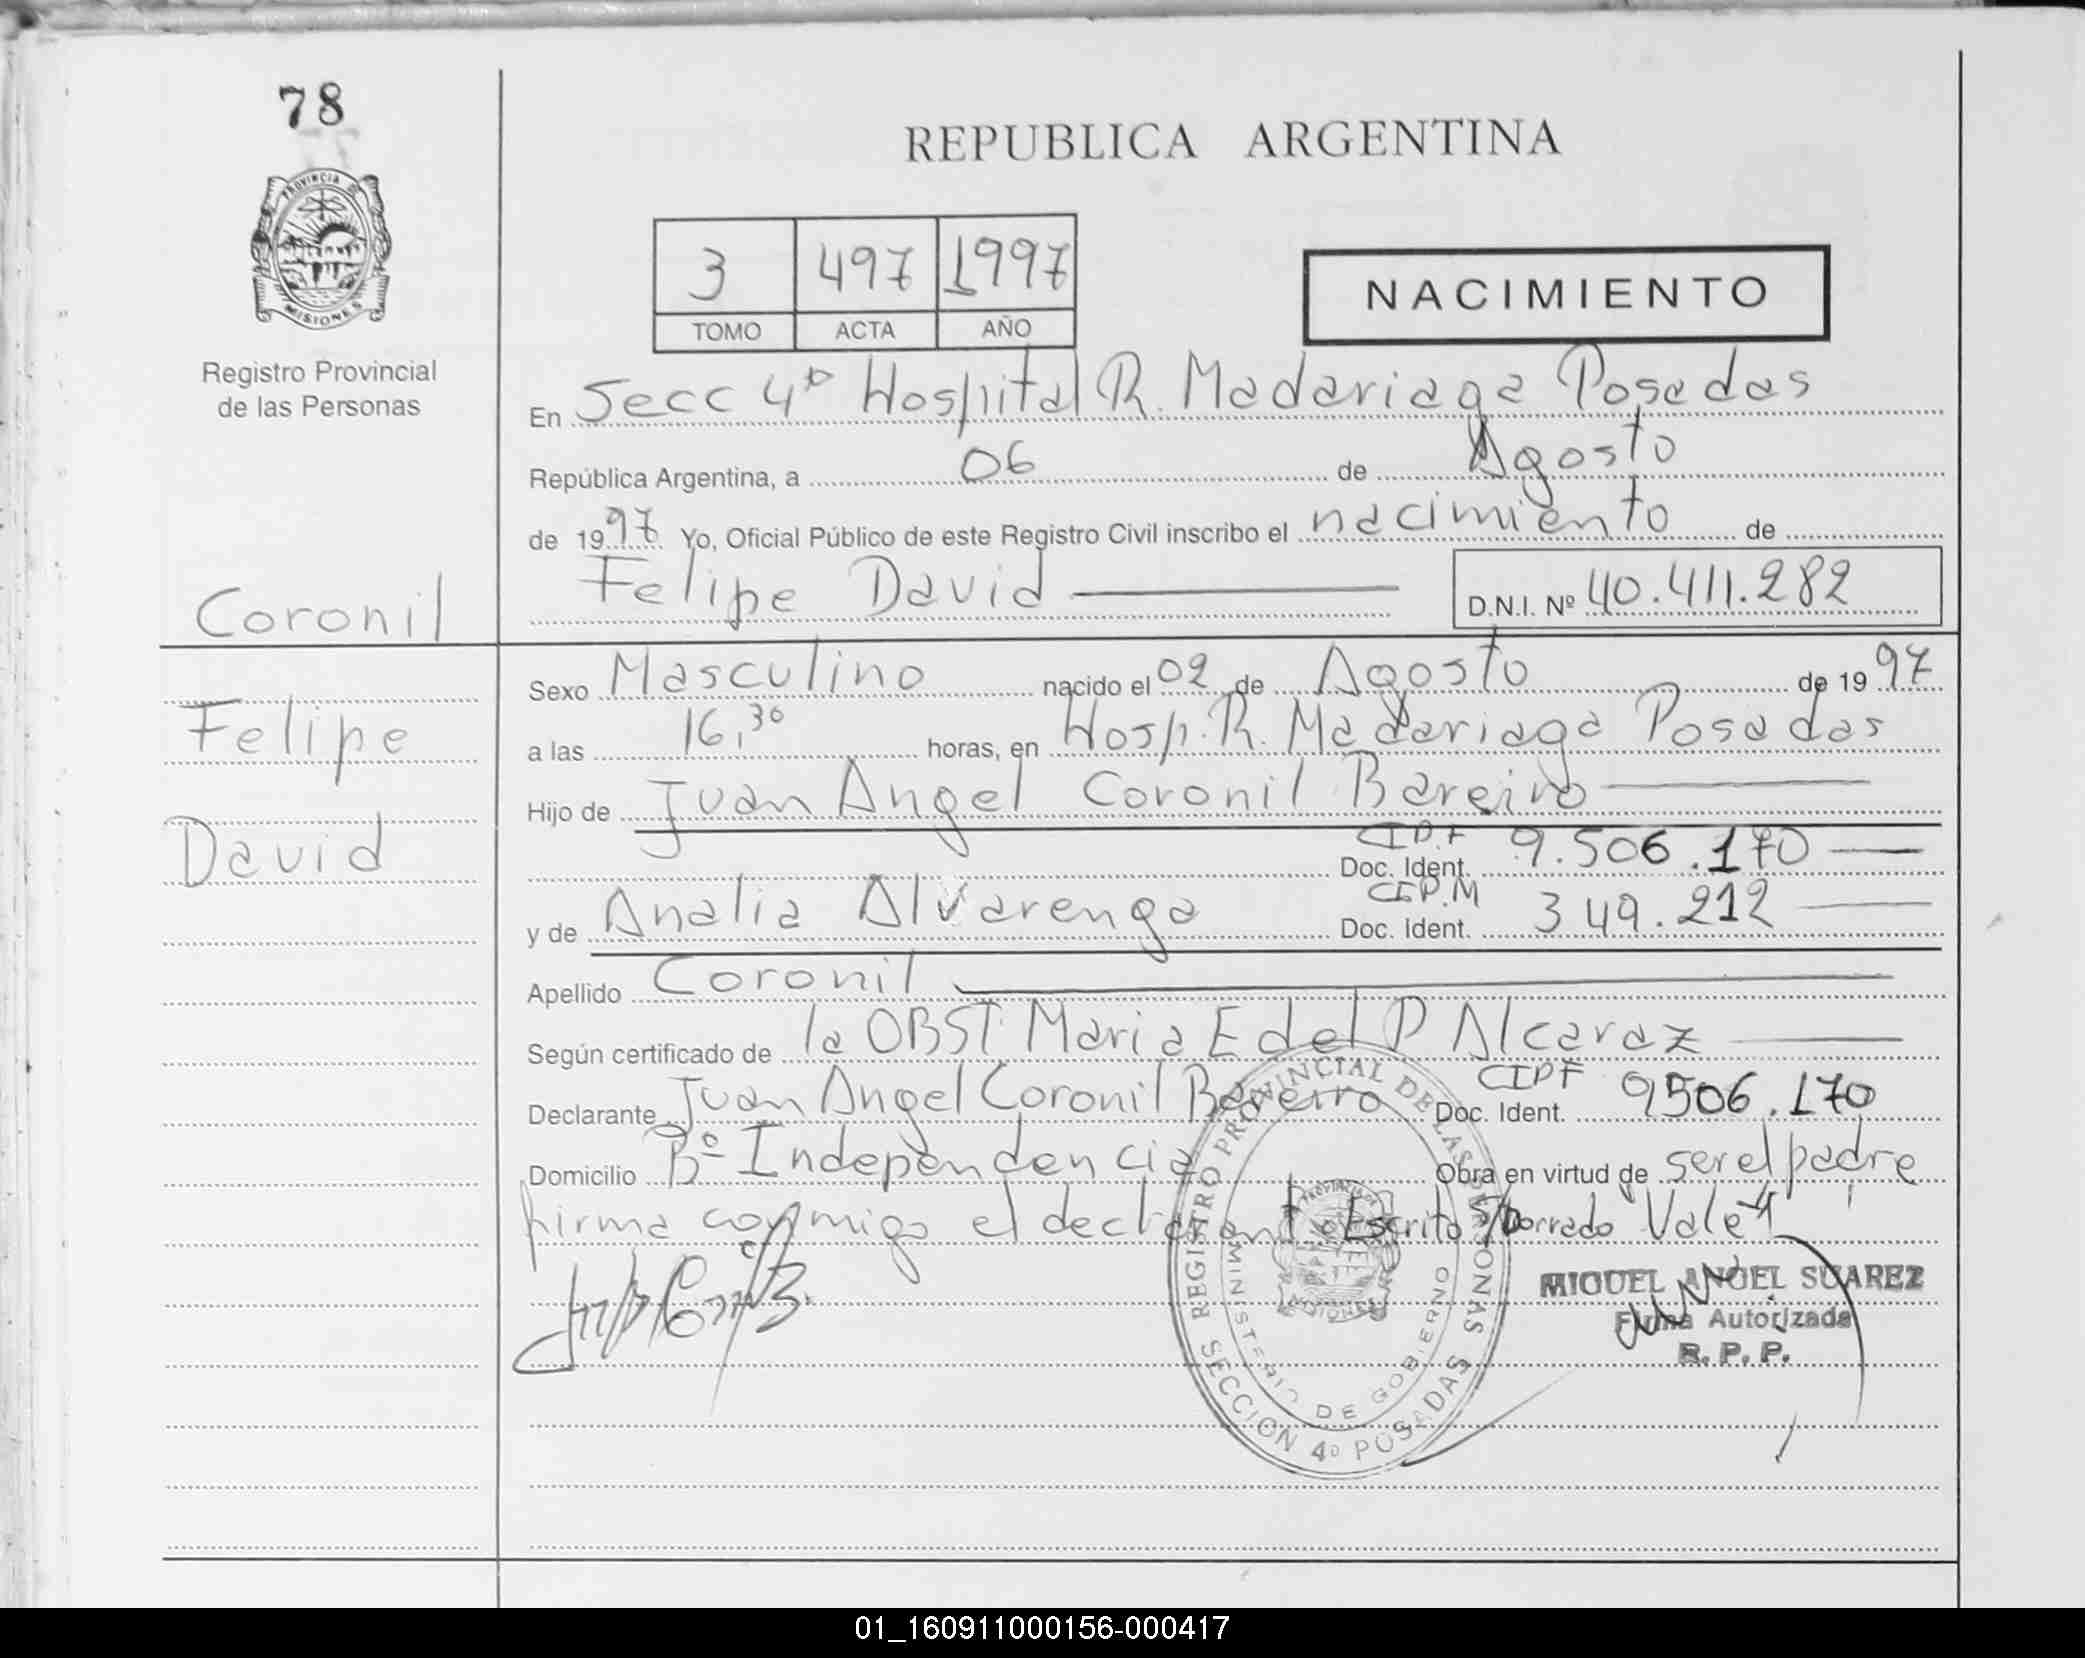 78
REPUBLICA ARGENTINA
PROVINCIA DE
MISIONES
Registro Provincial
de las Personas
3 497 1997
TOMO ACTA AÑO
NACIMIENTO
En Secc 4ª Hospital R. Madariaga Posadas
República Argentina, a 06 de Agosto
de 1997 Yo, Oficial Público de este Registro Civil inscribo el nacimiento de
Felipe David D.N.I. Nº 40.411.282
Coronil
Felipe
David
Sexo Masculino nacido el 02 de Agosto de 1997
a las 16,30 horas, en Hosp. R. Madariaga Posadas
Hijo de Juan Angel Coronil Bareiro
CIP.F
Doc. Ident. 9.506.170
CIP.M
y de Analia Alvarenga Doc. Ident. 349.212
Apellido Coronil
Según certificado de la OBST. Maria Edel P Alcaraz
CIPF
Declarante Juan Angel Coronil Bareiro Doc. Ident. 9506.170
Domicilio Bº Independencia Obra en virtud de ser el padre
firma conmigo el declarante Escrito s/borrado "Vale"
REGISTRO PROVINCIAL DE LAS PERSONAS
MINISTERIO DE GOBIERNO
SECCION 4º POSADAS
MIGUEL ANGEL SUAREZ
Firma Autorizada
R. P. P.
01_160911000156-000417